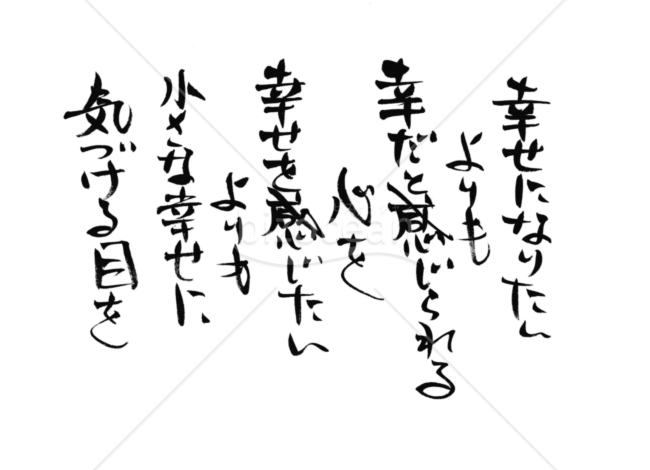 幸せになりたい
よりも
幸だと感じられる
心を
幸せを感じたい
よりも
小さな幸せに
気づける目を